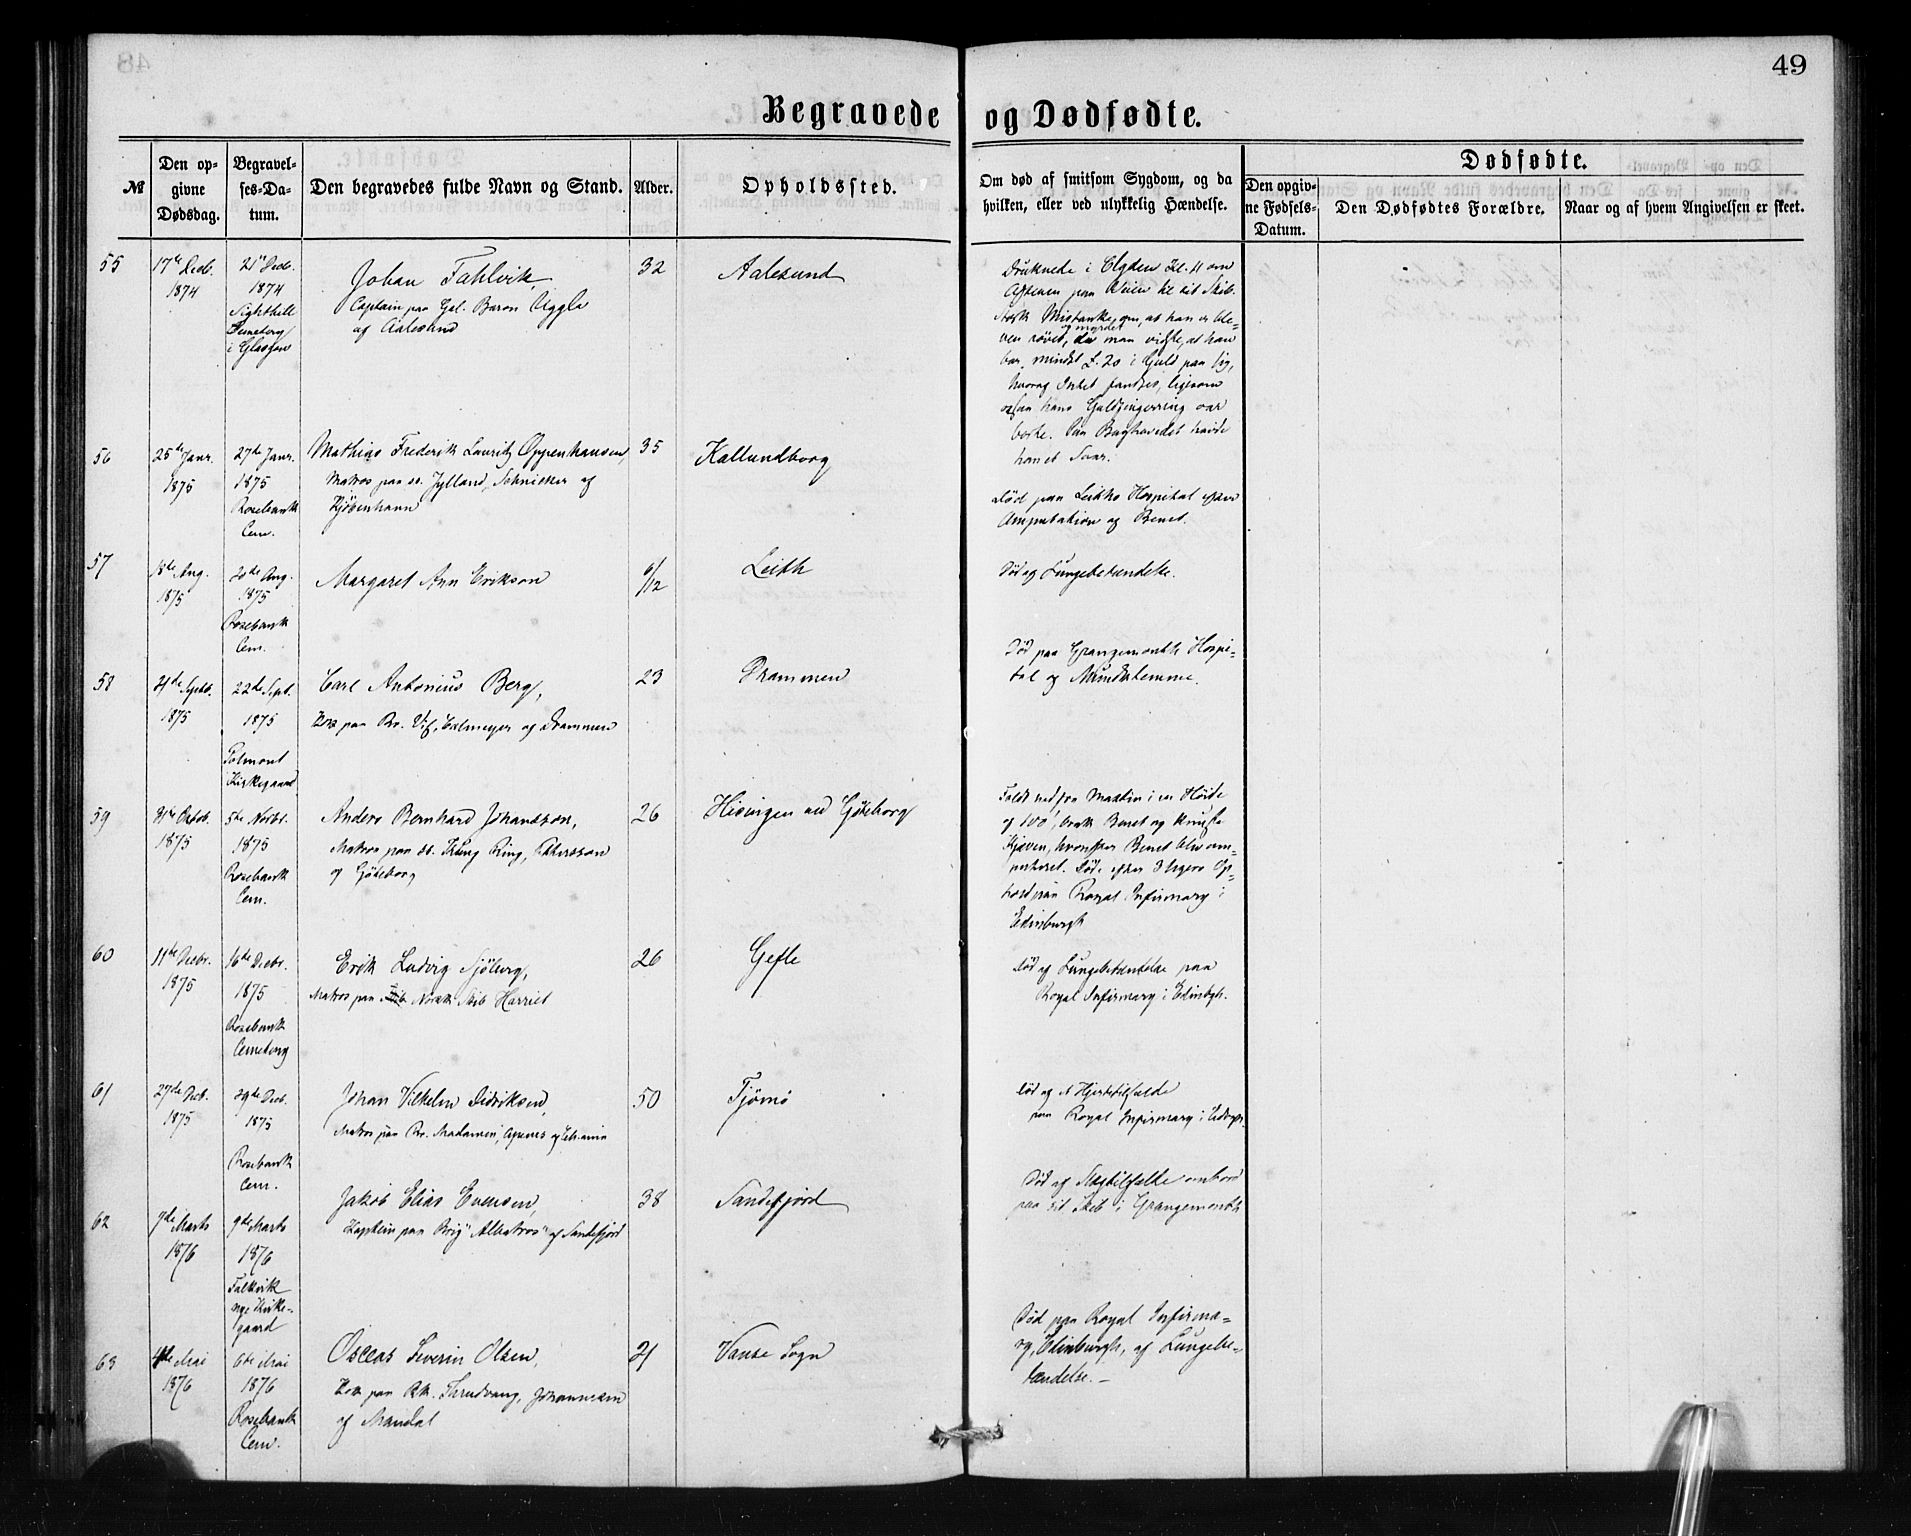 49
Begravede og Dødfødte.
№
Den op-
givne
Dødsdag.
Begravel-
ses-Da-
tum.
Den begravedes fulde Navn og Stand.
Alder.
Opholdssted.
Om død af smitsom Sygdom, og da
hvilken, eller ved ulykkelig Hændelse.
Dødfødte.
Den opgiv-
ne Fødsels-
Datum.
Den Dødfødtes Forældre.
Naar og af hvem Angivelsen er skeet.
55
17de Decb.
1874
21de Decb.
1874
Sighthill
Cemetery
i Glasgow
Johan Fahlvik,
Captain paa Gal. Baron Uggla
af Aalesund
32
Aalesund
Druknede i Clyden Kl. 11 om
Aftenen paa Veien til sit Skib.
Stærk Mistanke om, at han er ble-
ven røvet og myrdet, da man vidste, at han
bar mindst £.20 i Guld paa sig,
hvoraf Intet fandtes, ligesom
ogsaa hans Guldfingerring var
borte. Paa Baghovedet havde
han et Saar.
56
25de Janr.
1875
27de Janr.
1875
Rosebank
Cem.
Mathias Frederik Lauritz Oppenhausen,
Matros paa Jylland, af
Kjøbenhavn
35
Kallundborg
Død paa Leiths Hospital efter
Amputation af Benet.
57
18de Aug.
1875
20de Aug.
1875
Rosebank
Cem.
Margaret Ann Erikson
6/12
Leith
Død af Lungebetændelse.
58
21de Septb.
1875
22de Sept.
1875
Polmont
Kirkegaard
Carl Antonius Berg,
paa Br. af Drammen
23
Drammen
Død paa Grangemouth Hospi-
tal af Mundklemme.
59
31te Octob.
1875
5te Novbr.
1875
Rosebank
Cem.
Anders Bernhard Johansson,
Matros paa sk. Kung Ring,
af Göteborg
26
Hisingen ved Göteborg
Faldt ned fra Masten i en Høide
af 100', brak Benet og knuste
Kjæven, hvorefter Benet blev am-
puteret. Døde efter 3 Ugers Op-
hold paa Royal Infirmary i
Edinburgh
60
11te Decbr.
1875
16de Decbr.
1875
Rosebank
Cemetery
Erik Ludvig Sjöberg,
Matros paa Norsk Skib Harriet
26
Gefle
Død af Lungebetændelse paa
Royal Infirmary i Edinbgh.
61
27de Decb.
1875
29de Decb.
1875
Rosebank
Cem.
Johan Vilhelm Didriksen,
Matros paa Br.
50
Tjømø
Død af Hjertetilfælde
paa Royal Infirmary i Edbgh.
62
7de Marts
1876
9de Marts
1876
Falkirk
nye Kirke-
gaard
Jakob Elias Evensen,
Kaptein paa Brig "Albatros" af Sandefjord
38
Sandefjord
Død af Slagtilfælde ombord
paa sit Skib i Grangemouth
63
4de Mai
1876
6te Mai
1876
Rosebank
Cem.
Oscar Severin Olsen,
Kok paa Bk. Thrudvang, Johannesen
af Mandal
21
Vanse Sogn
Død paa Royal Infirma-
ry, Edinburgh, af Lungebe-
tændelse.